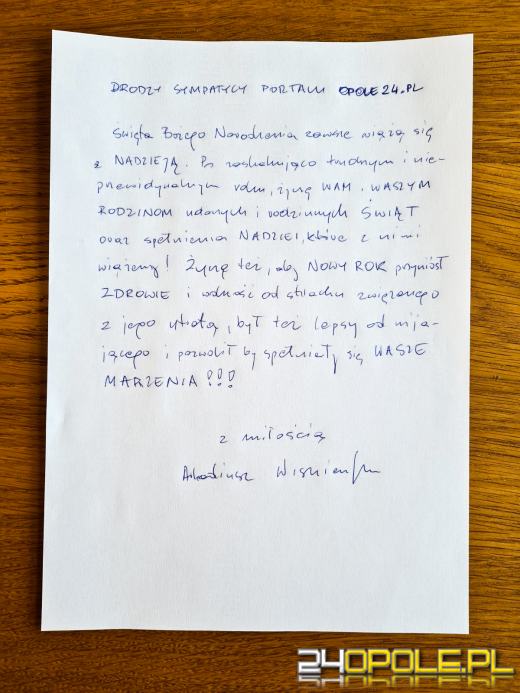 DRODZY SYMPATYCY PORTALU OPOLE24.PL
Święta Bożego Narodzenia zawsze wiążą się
z NADZIEJĄ. Po zaskakująco trudnym i nie-
przewidywalnym roku, życzę WAM i WASZYM
RODZINOM udanych i rodzinnych ŚWIĄT
oraz spełnienia NADZIEI, które z nimi
wiążemy! Życzę też, aby NOWY ROK przyniósł
ZDROWIE i wolność od strachu związanego
z jego utratą, był też lepszy od mija-
jącego i pozwolił by spełniały się WASZE
MARZENIA!!!
z miłością
Arkadiusz Wiśniewski
24OPOLE.PL